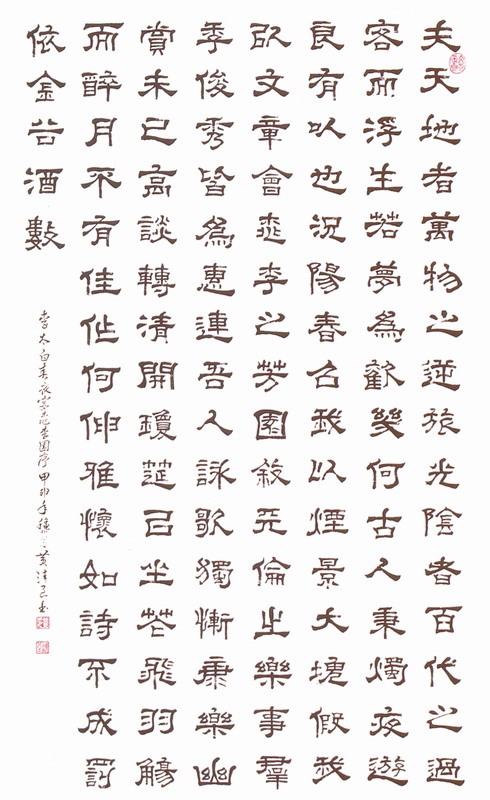 夫天地者萬物之逆旅光陰者百代之過
客而浮生若夢為歡幾何古人秉燭夜遊
良有以也況陽春召我以煙景大塊假我
以文章會桃李之芳園敘天倫之樂事羣
季俊秀皆為惠連吾人詠歌獨慚康樂幽
賞未已高談轉清開瓊筵以坐花飛羽觴
而醉月不有佳作何伸雅懷如詩不成罰
依金谷酒數
李太白春夜宴桃李園序甲申年